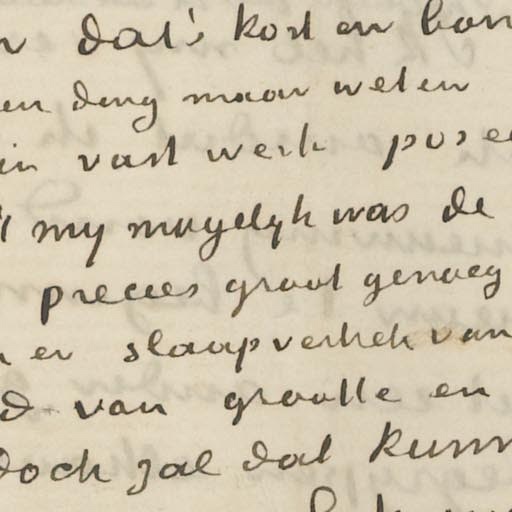 dat's kost en
ding maar weten
in vast werk
't my mogelyk was de
precies groot genoeg
er slaapvertrek van
van grootte en
doch zal dat